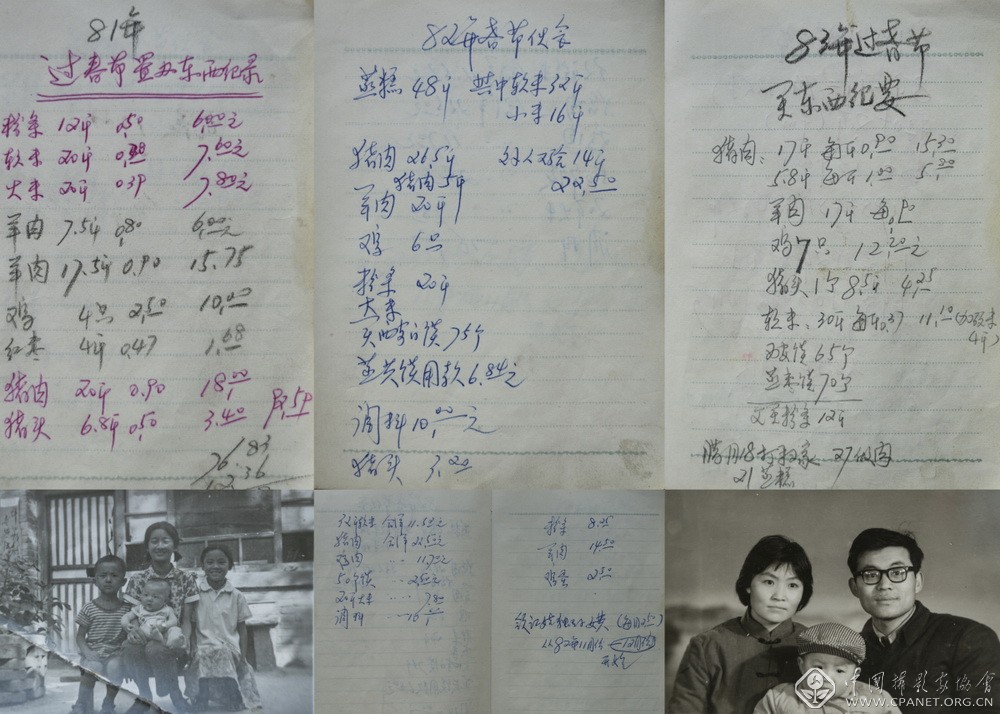 81年
过春节置办东西纪录
粉条 12斤 0.50 6.00元
软米 20斤 0.38 7.60元
大米 20斤 0.39 7.80元
羊肉 7.5斤 0.80 6.00元
羊肉 17.5斤 0.90 15.75
鸡 4只 2.50 10.00
红枣 4斤 0.47 1.68
猪肉 20斤 0.90 18.00
猪头 6.8斤 0.50 3.40
76.83
82年春节伙食
蒸糕 48斤 其中软米32斤
小米16斤
猪肉 26.5斤 14斤
猪肉5斤 22.50
羊肉 20斤
鸡 6只
粉条 20斤
大米
馍 75个
蒸共馍用款6.84元
调料10.00元
猪头 3.20
83年过春节
买东西纪要
猪肉: 17斤 每斤0.90 15.30
5.8斤 每斤1.00 5.80
羊肉 17斤 每
鸡7只 12.20元
猪头1个8.5斤 4.25
软米、30斤 每斤0.37 11.10(加软米
4斤)
馍65个
蒸枣馍70个
粉条12斤
腊月18打扫家 27做肉
21蒸糕
软米 合洋11.50元
猪肉 合洋22.50元
鸡肉
50个馍
20斤大米 7.80
调料
粉条
羊肉 14.50
鸡蛋 2.50
领 独子费(每月2.5)
从82年11月份
中国摄影家协会
WWW.CPANET.ORG.CN